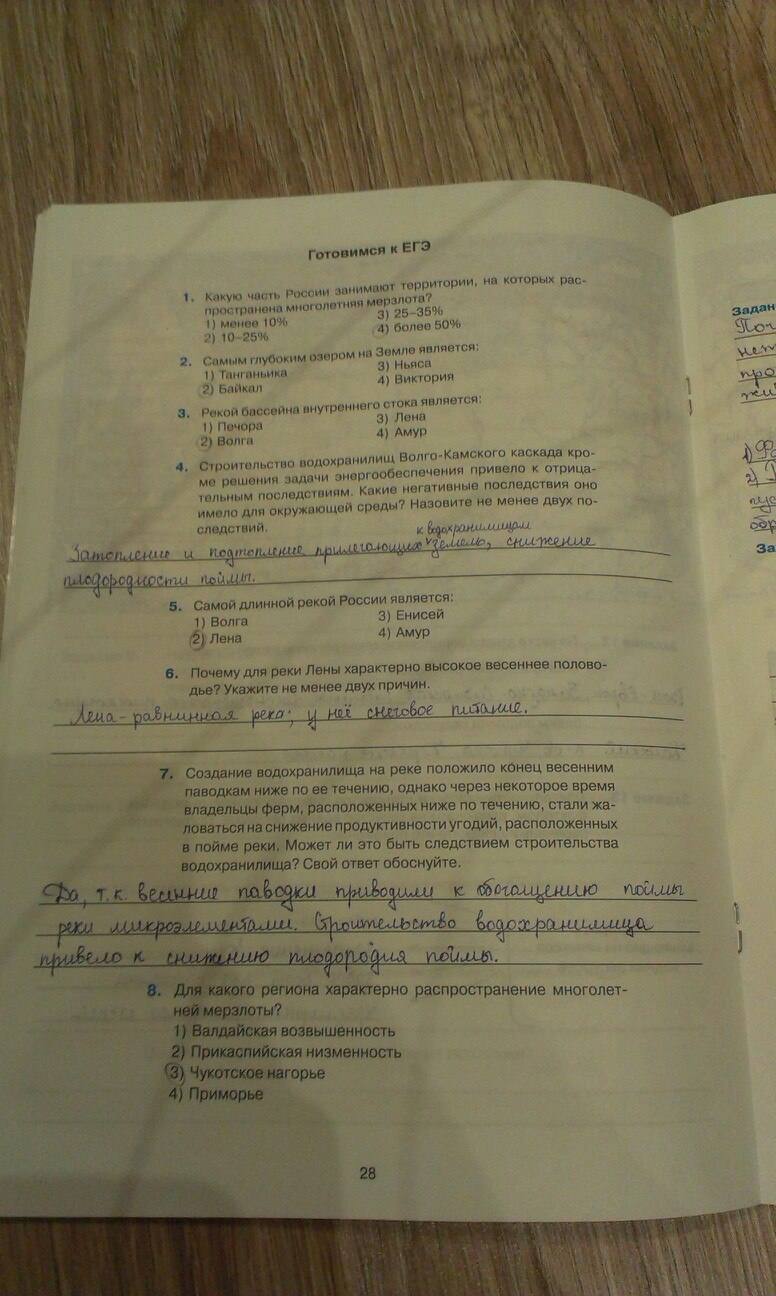 Готовимся к ЕГЭ
1. Какую часть России занимают территории, на которых рас-
пространена многолетняя мерзлота?
1) менее 10% 3) 25–35%
2) 10–25% 4) более 50%
2. Самым глубоким озером на Земле является:
1) Танганьика 3) Ньяса
2) Байкал 4) Виктория
3. Рекой бассейна внутреннего стока является:
1) Печора 3) Лена
2) Волга 4) Амур
4. Строительство водохранилищ Волго-Камского каскада кро-
ме решения задачи энергообеспечения привело к отрица-
тельным последствиям. Какие негативные последствия оно
имело для окружающей среды? Назовите не менее двух по-
следствий.
к водохранилищам
Затопление и подтопление прилегающих земель, снижение
плодородности поймы.
5. Самой длинной рекой России является:
1) Волга 3) Енисей
2) Лена 4) Амур
6. Почему для реки Лены характерно высокое весеннее полово-
дье? Укажите не менее двух причин.
Лена-равнинная река; у неё снеговое питание.
7. Создание водохранилища на реке положило конец весенним
паводкам ниже по ее течению, однако через некоторое время
владельцы ферм, расположенных ниже по течению, стали жа-
ловаться на снижение продуктивности угодий, расположенных
в пойме реки. Может ли это быть следствием строительства
водохранилища? Свой ответ обоснуйте.
Да, т.к. весенние паводки приводили к обогащению поймы
реки микроэлементами. Строительство водохранилища
привело к снижению плодородия поймы.
8. Для какого региона характерно распространение многолет-
ней мерзлоты?
1) Валдайская возвышенность
2) Прикаспийская низменность
3) Чукотское нагорье
4) Приморье
28
Задан
нет
про
жи
1)
2)
пус
обр
За